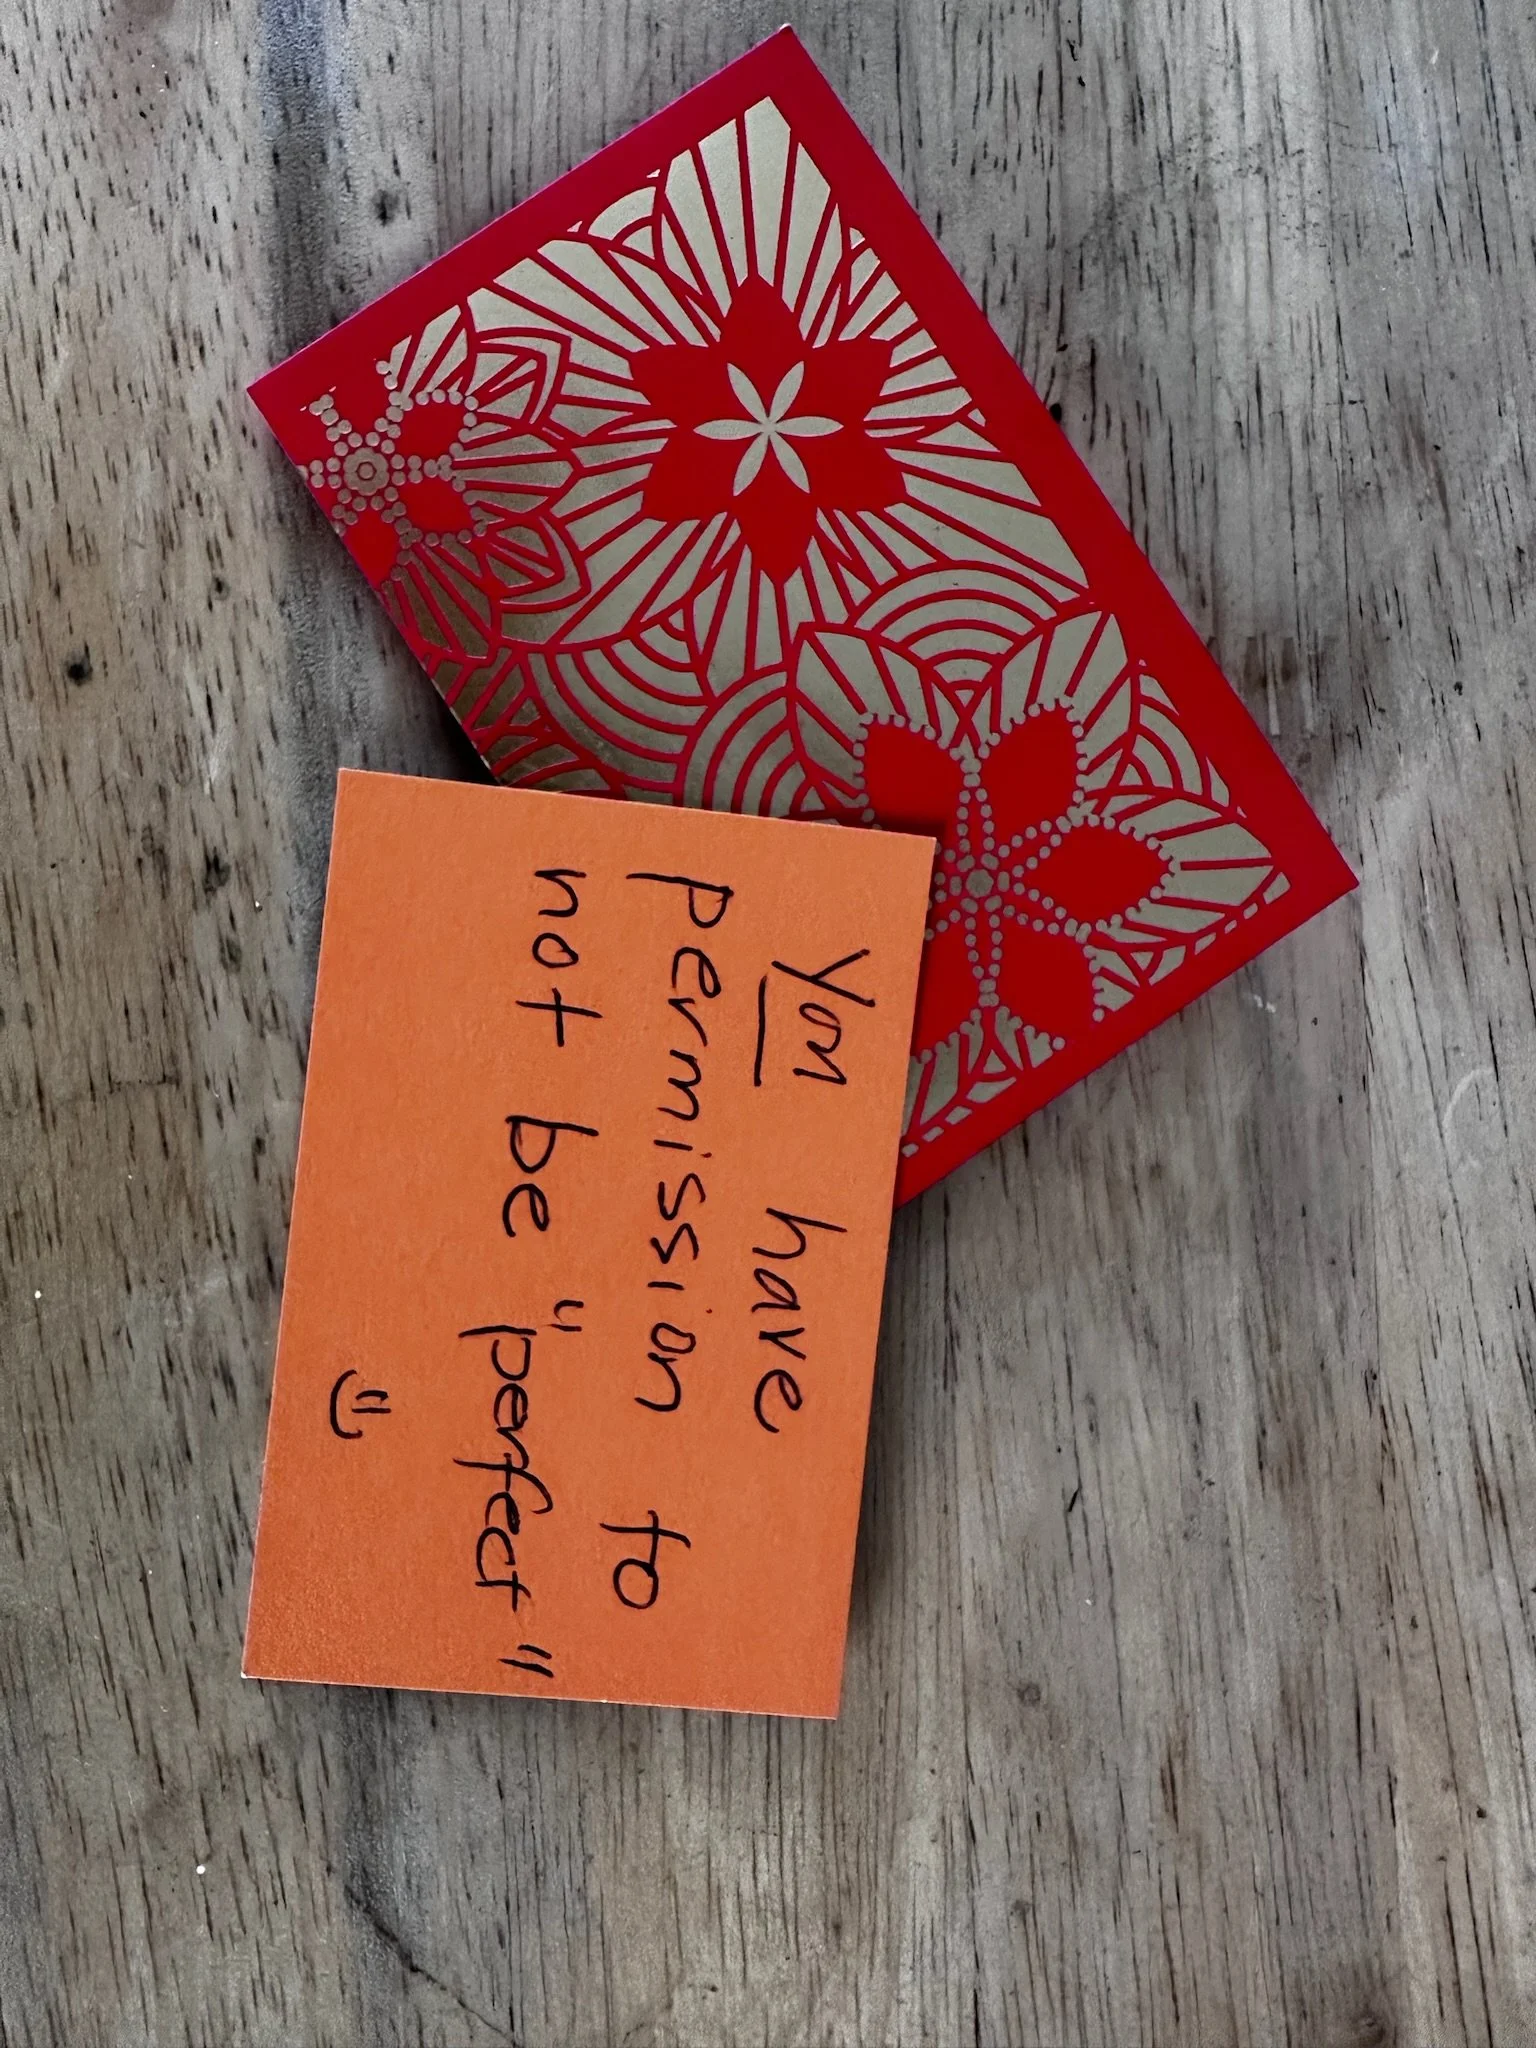 You have
permission to
not be "perfect"